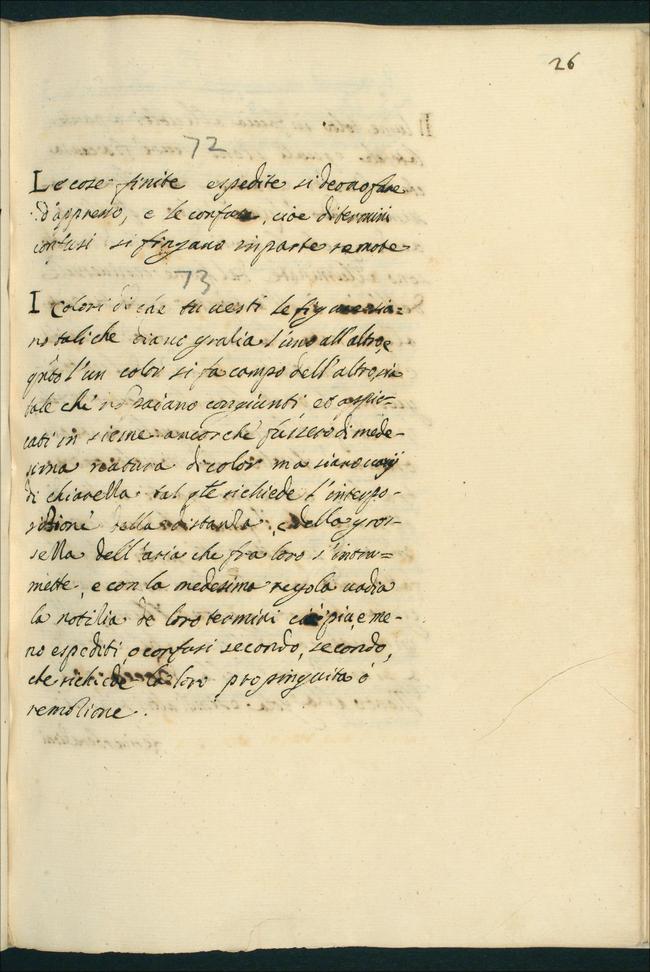 26
72
Le cose finite espedite si deono fare
d'appresso, e le confuse, cioè di termini
confusi si fingano in parte remote
73
I colori di che tu vesti le figure sia=
no tali che diano gratia l'uno all'altro, e
qñto l'un color si fa campo dell'altro, sia
tale che nõ paiano congiunti, et appic=
cati in sieme ancorche fussero di mede=
sima natura di color ma siano varij
di chiarezza tal qle richiede l'interpo-
sitione della distanza, e della gros=
sezza dell'aria che fra loro s'intra=
mette, e con la medesima regola vadia
la notitia de loro termini cioè piu, e me-
no espediti o confusi secondo, secondo,
che richiede la loro propinquità ò
remotione.